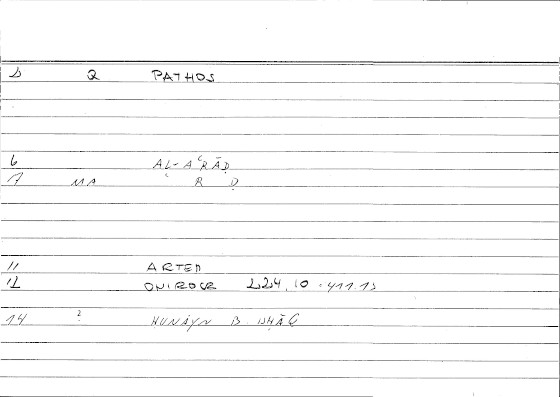 Q PATHOS
6 AL-AʿRĀḌ
7 MA ʿ R Ḍ
11 ARTEM
12 ONIROCR 224,10 = 411.13
14 ? ḤUNAYN B. ISḤĀQ